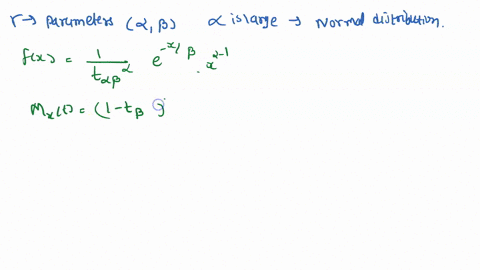 r → parameters (α, β) α is large → Normal distribution.
f(x) = 1 / tαβ^α e^-x/β . x^α-1
Mx(t) = (1 - tβ )